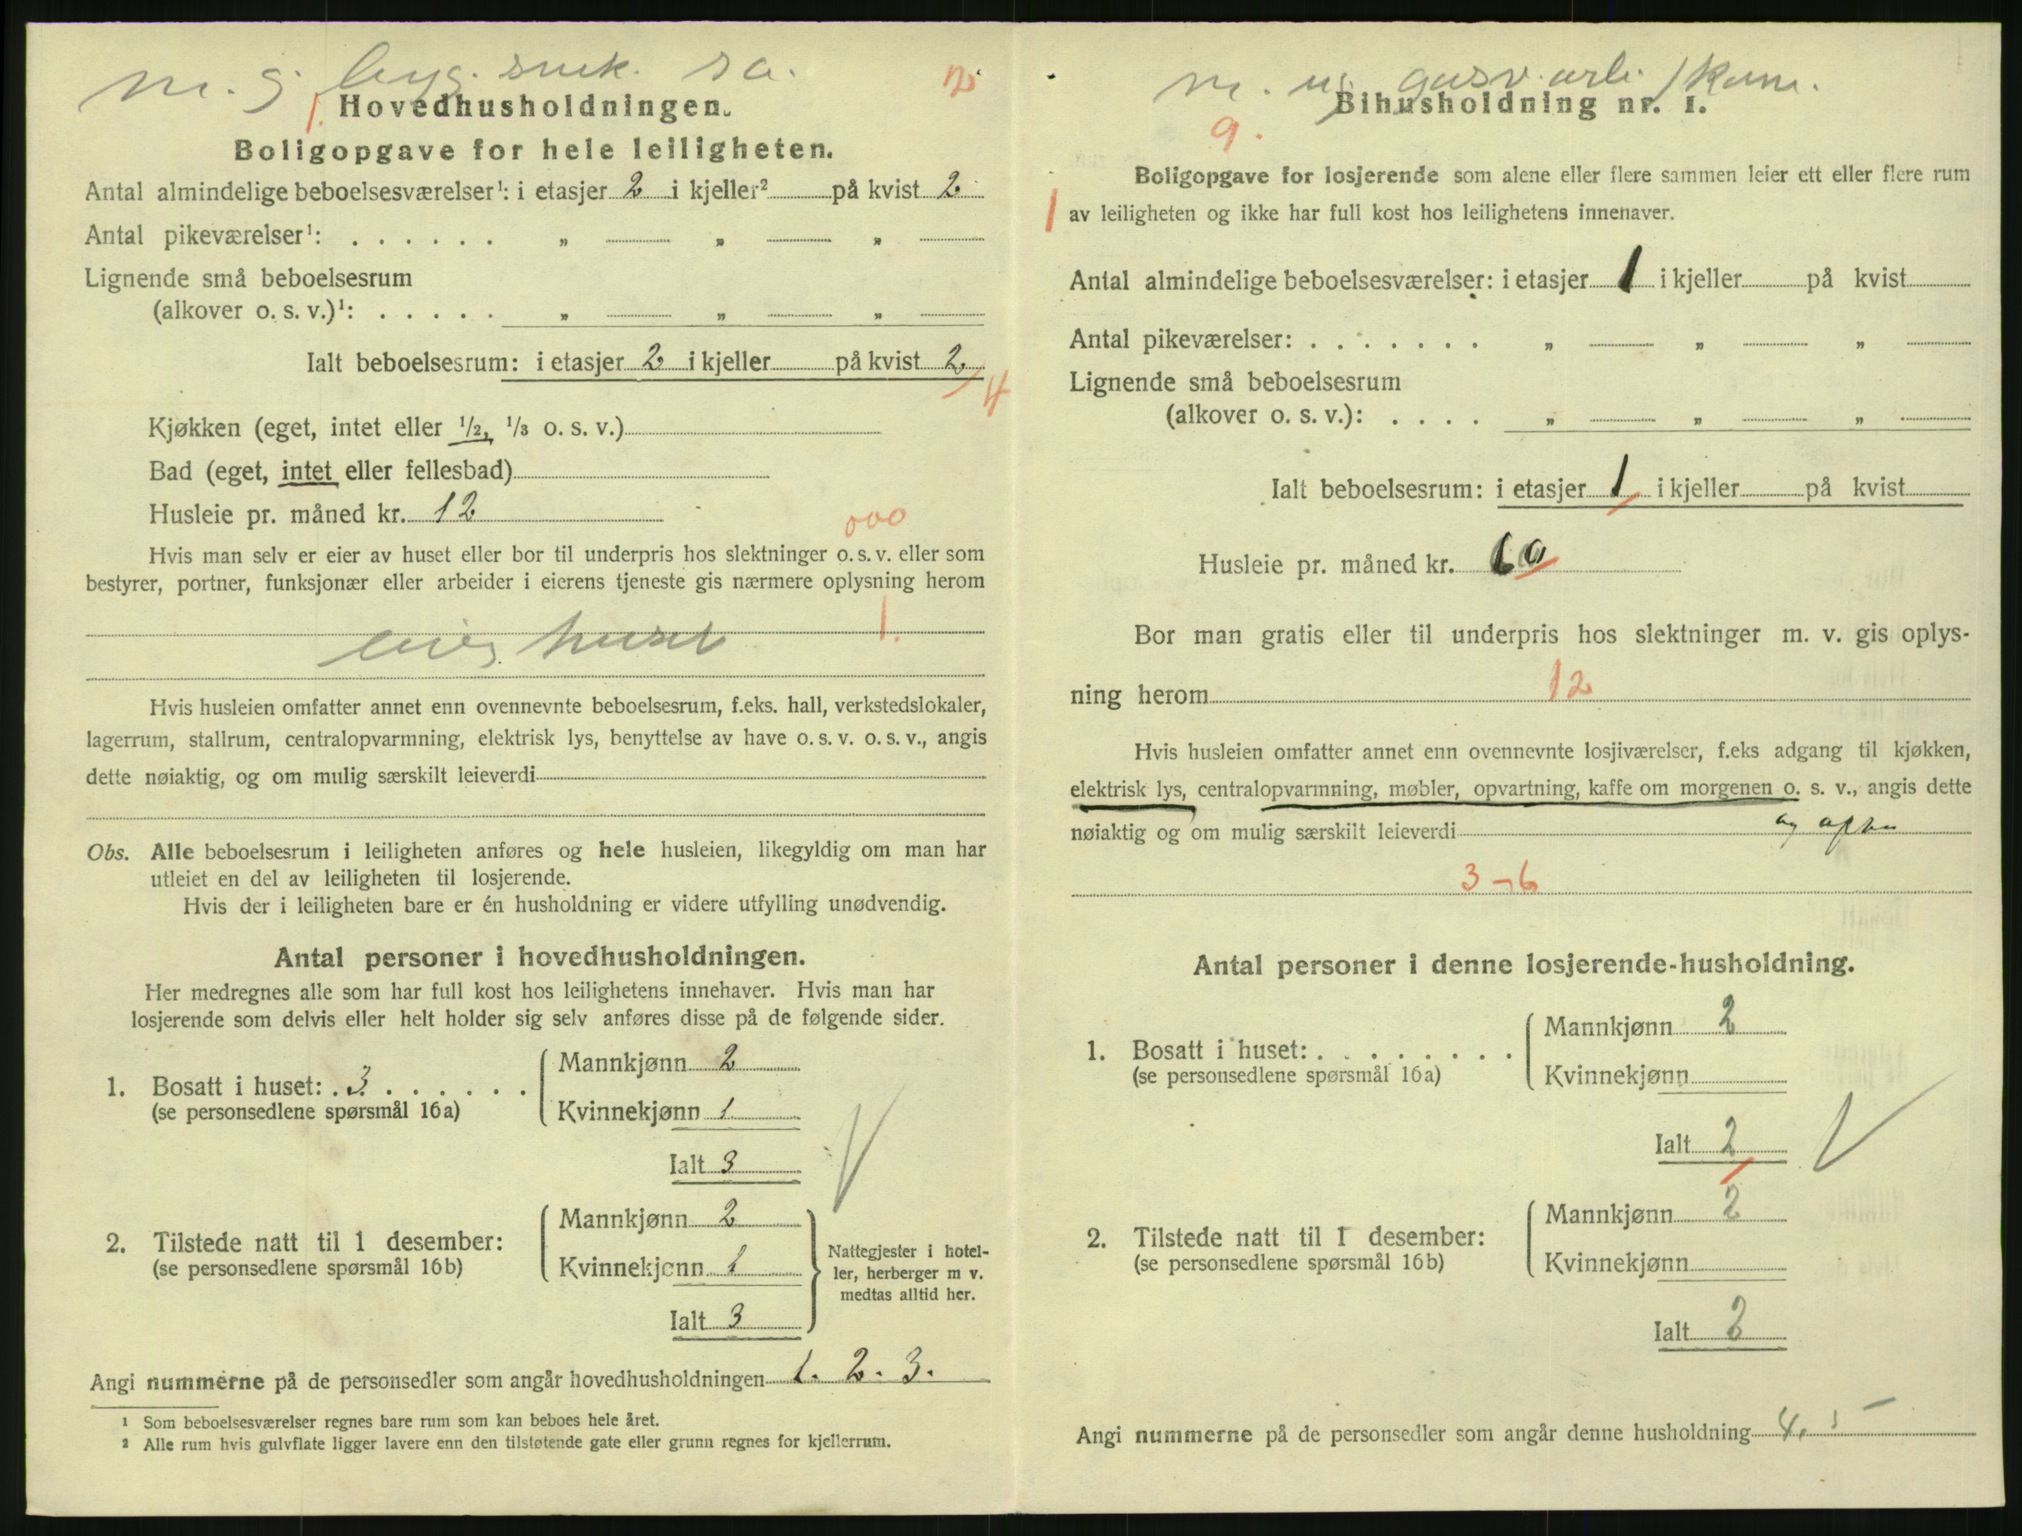 m. g. byg. snek. sa.
1.
Hovedhusholdningen.
Boligopgave for hele leiligheten.
Antal almindelige beboelsesværelser¹: i etasjer 2 i kjeller² på kvist 2
Antal pikeværelser¹: . . . . . . „ „ „
Lignende små beboelsesrum
(alkover o. s. v.)¹: . . . . . „ „ „
Ialt beboelsesrum: i etasjer 2 i kjeller på kvist 2
4
Kjøkken (eget, intet eller ½, ⅓ o. s. v.)
Bad (eget, intet eller fellesbad)
Husleie pr. måned kr. 12
000
Hvis man selv er eier av huset eller bor til underpris hos slektninger o. s. v. eller som
bestyrer, portner, funksjonær eller arbeider i eierens tjeneste gis nærmere oplysning herom
1.
eier huset
Hvis husleien omfatter annet enn ovennevnte beboelsesrum, f.eks. hall, verkstedslokaler,
lagerrum, stallrum, centralopvarmning, elektrisk lys, benyttelse av have o. s. v. o. s. v., angis
dette nøiaktig, og om mulig særskilt leieverdi
Obs. Alle beboelsesrum i leiligheten anføres og hele husleien, likegyldig om man har
utleiet en del av leiligheten til losjerende.
Hvis der i leiligheten bare er én husholdning er videre utfylling unødvendig.
Antal personer i hovedhusholdningen.
Her medregnes alle som har full kost hos leilighetens innehaver. Hvis man har
losjerende som delvis eller helt holder sig selv anføres disse på de følgende sider.
Mannkjønn 2
1. Bosatt i huset: . 3 . . . . . .
(se personsedlene spørsmål 16a)
Kvinnekjønn 1
Ialt 3
Mannkjønn 2
2. Tilstede natt til 1 desember:
(se personsedlene spørsmål 16b)
Kvinnekjønn 1
Ialt 3
Nattegjester i hotel-
ler, herberger m v.
medtas alltid her.
Angi nummerne på de personsedler som angår hovedhusholdningen 1. 2. 3.
¹ Som beboelsesværelser regnes bare rum som kan beboes hele året.
² Alle rum hvis gulvflate ligger lavere enn den tilstøtende gate eller grunn regnes for kjellerrum.
m. ug. gasv. arb.
Bihusholdning nr. 1.
9.
1
Boligopgave for losjerende som alene eller flere sammen leier ett eller flere rum
av leiligheten og ikke har full kost hos leilighetens innehaver.
Antal almindelige beboelsesværelser: i etasjer 1 i kjeller på kvist
Antal pikeværelser: . . . . . . . „ „ „
Lignende små beboelsesrum
(alkover o. s. v.): . . . . „ „ „
Ialt beboelsesrum: i etasjer 1 i kjeller på kvist
Husleie pr. måned kr. 60
Bor man gratis eller til underpris hos slektninger m. v. gis oplys-
ning herom 12
Hvis husleien omfatter annet enn ovennevnte losjiværelser, f.eks adgang til kjøkken,
elektrisk lys, centralopvarmning, møbler, opvartning, kaffe om morgenen o. s. v., angis dette
nøiaktig og om mulig særskilt leieverdi og
3 - 6
Antal personer i denne losjerende-husholdning.
Mannkjønn 2
1. Bosatt i huset: . . . . . . . .
(se personsedlene spørsmål 16a)
Kvinnekjønn
Ialt 2
Mannkjønn 2
2. Tilstede natt til 1 desember:
(se personsedlene spørsmål 16b)
Kvinnekjønn
Ialt 2
Angi nummerne på de personsedler som angår denne husholdning 4, 5